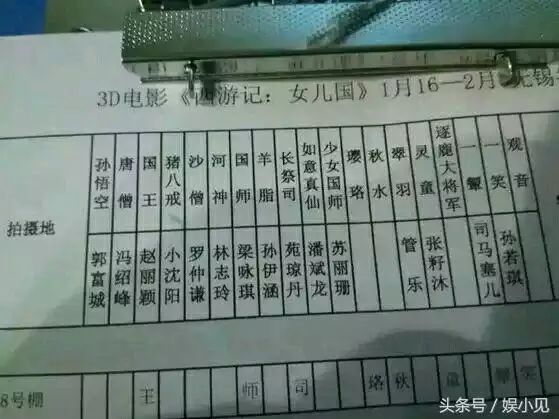 3D电影《西游记：女儿国》1月16—2月 无锡
拍摄地 孙悟空 唐僧 国王 猪八戒 沙僧 河神 国师 羊脂 长祭司 如意真仙 少女国师 璎珞 秋水 翠羽 灵童 逐鹿大将军 一颦 一笑 观音
郭富城 冯绍峰 赵丽颖 小沈阳 罗仲谦 林志玲 梁咏琪 孙伊涵 苑琼丹 潘斌龙 苏丽珊 管乐 张籽沐 司马塞儿 孙若琪
8号棚 王 师 司 珞 秋
头条号 / 娱小见